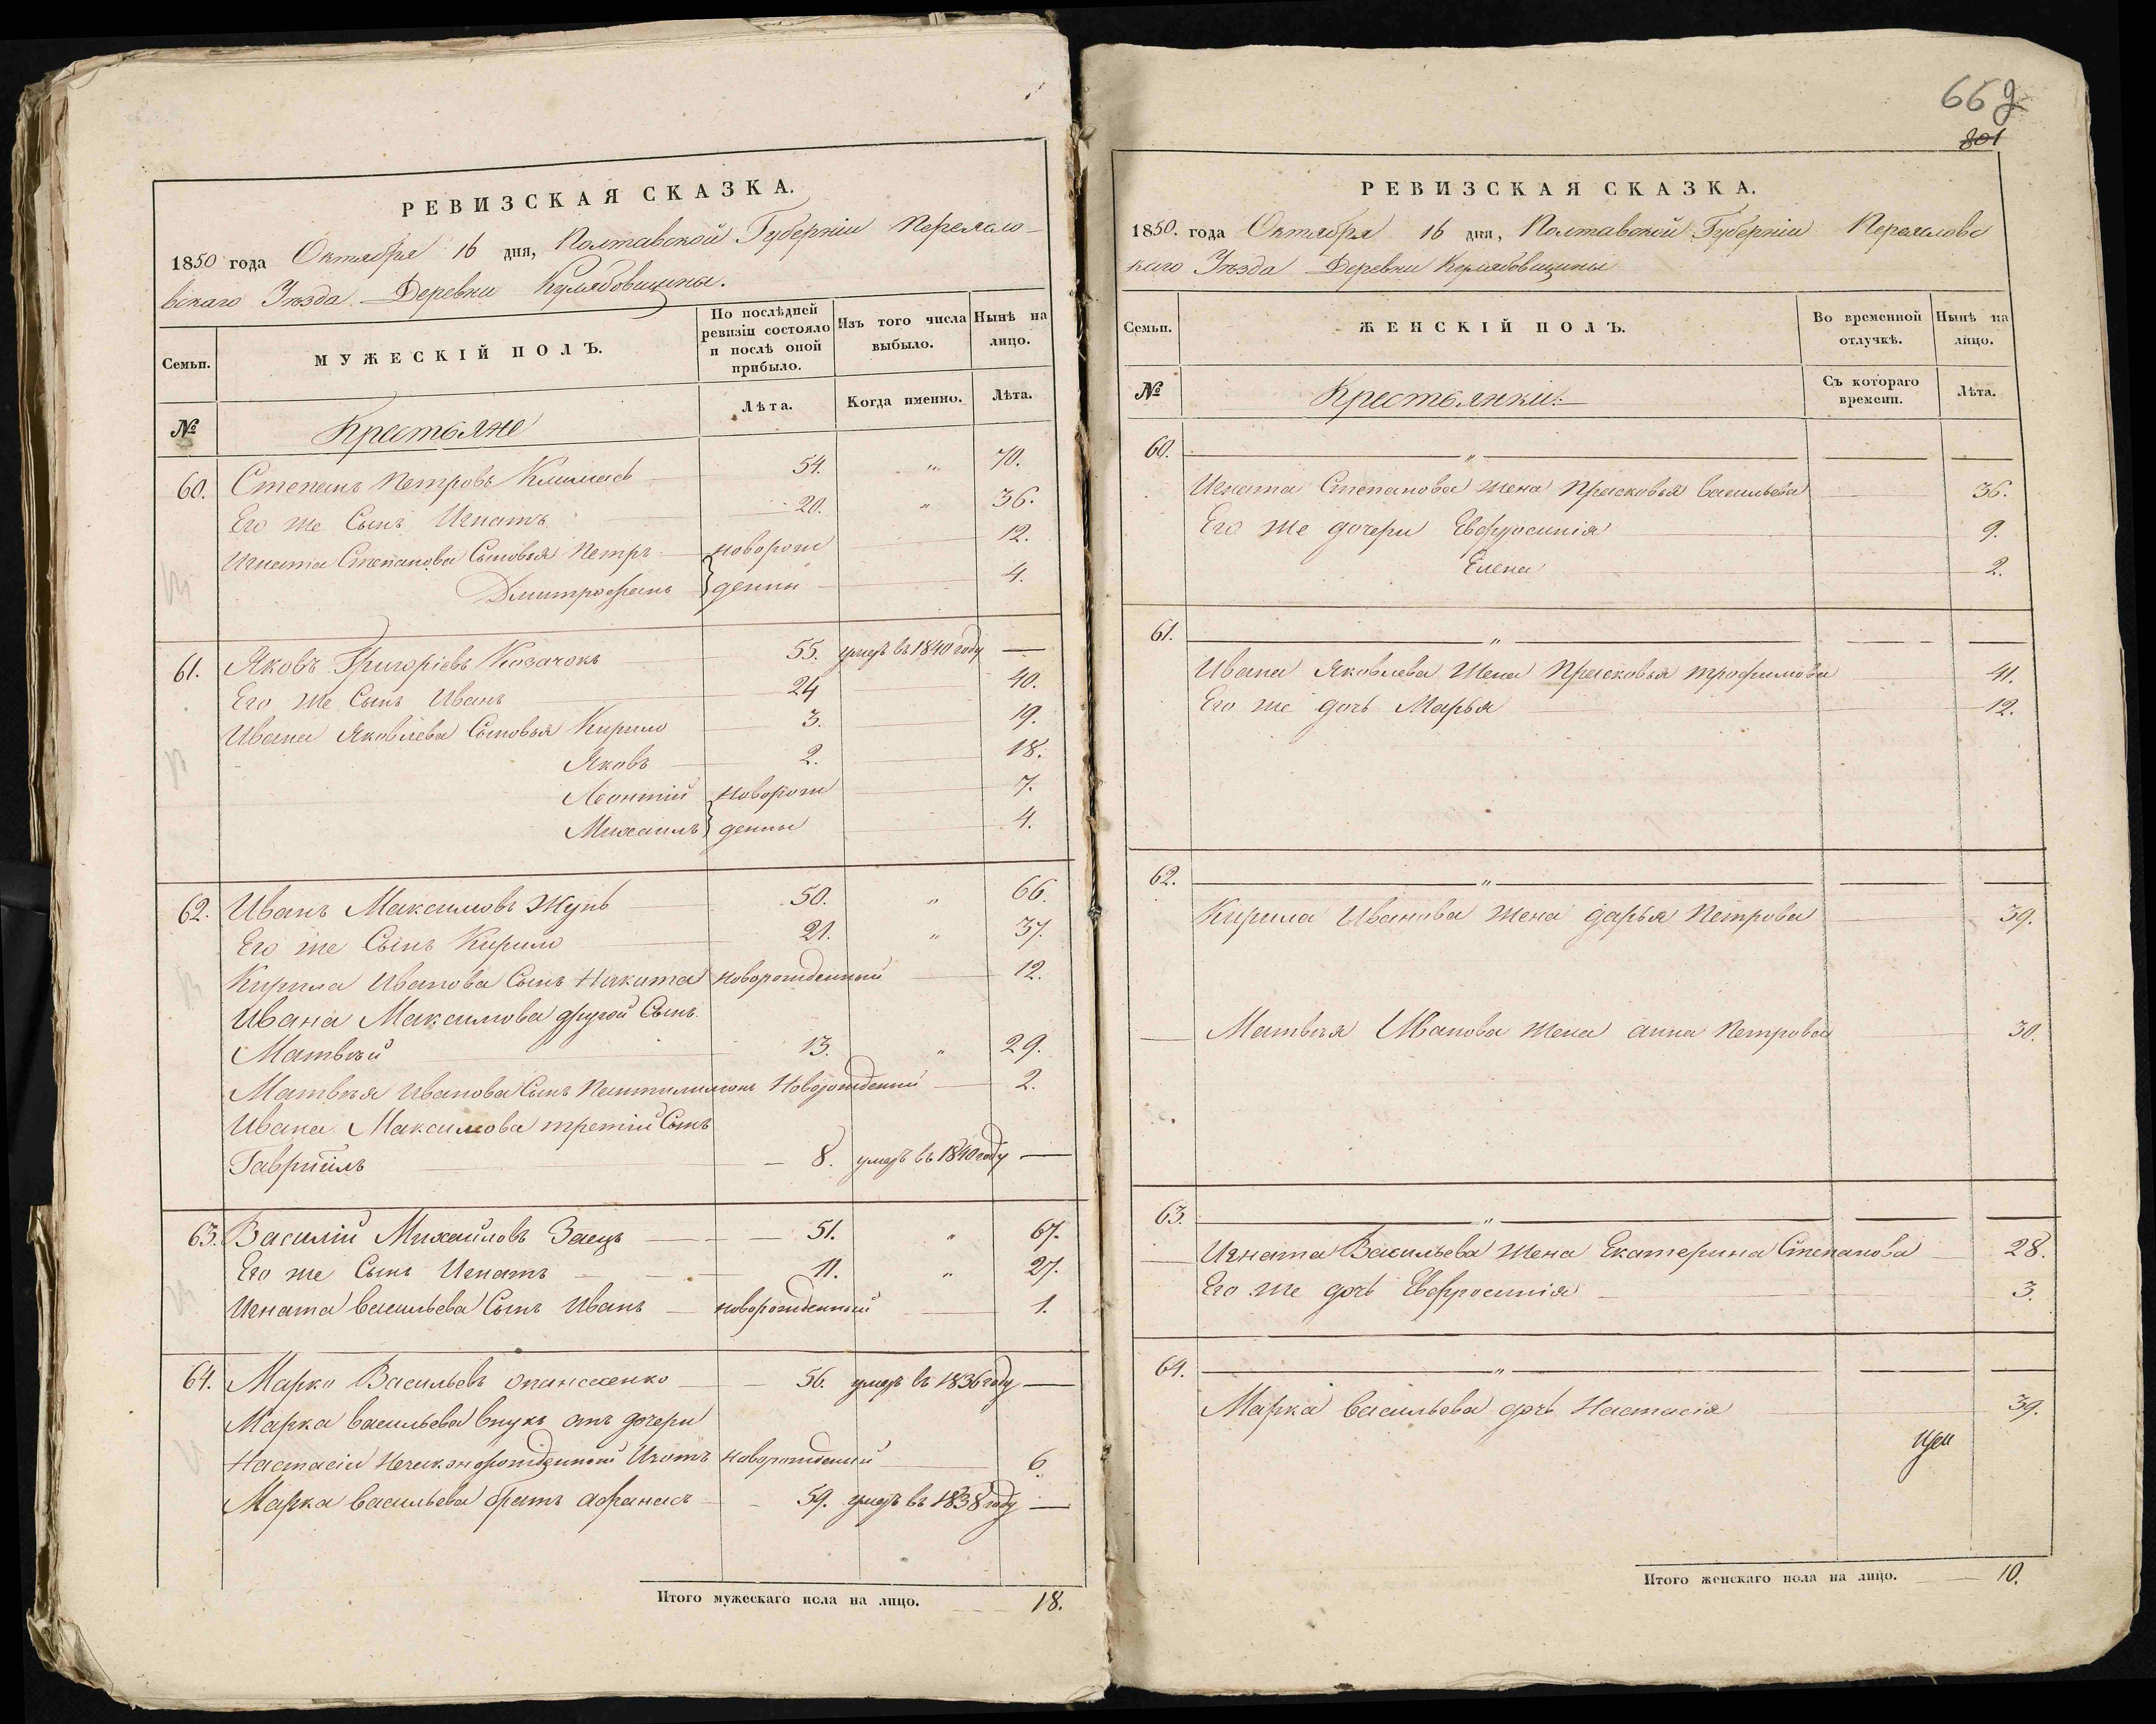 РЕВИЗСКАЯ СКАЗКА.
1850 года Октября 16 дня, Полтавской Губерніи Переясло-
вскаго Уѣзда Деревни Кулябовщины.
Семьи.
МУЖЕСКІЙ ПОЛЪ.
По послѣдней ревизіи состояло и послѣ оной прибыло.
Изъ того числа выбыло.
Нынѣ на лицо.
№
Крестьяне
Лѣта.
Когда именно.
Лѣта.
60. Степанъ Петровъ Климась 54. „ 70.
Его же Сынъ Игнатъ 20. „ 36.
Игната Степанова Сыновья Петръ новорож 12.
Дмитрофанъ денны 4.
61. Яковъ Григоріевъ Козачокъ 55. умеръ въ 1840 году —
Его же Сынъ Иванъ 24 40.
Ивана Яковлева Сыновья Кирило 3. 19.
Яковъ 2. 18.
Леонтій новорож 7.
Михаилъ денны 4.
62. Иванъ Максимовъ Жупъ 50. „ 66.
Его же Сынъ Кирило 21. „ 37.
Кирила Иванова Сынъ Никита новорожденный 12.
Ивана Максимова другой Сынъ
Матвѣй 13. „ 29.
Матвѣя Иванова Сынъ Пантилимонъ Новорожденый 2.
Ивана Максимова третій Сынъ
Гавріилъ 8. умеръ въ 1840 году —
63. Василій Михайловъ Заецъ 51. „ 67.
Его же Сынъ Игнатъ 11. „ 27.
Игната Васильева Сынъ Иванъ новорожденный 1.
64. Марко Васильевъ Опанасенко 56. умеръ въ 1836 году —
Марка Васильева внукъ отъ дочери
Настасіи Незаконорожденной новорожденый 6.
Марка Васильева братъ Афанась 59. умеръ въ 1838 году —
Итого мужескаго пола на лицо. 18.
66
801
РЕВИЗСКАЯ СКАЗКА.
1850. года Октября 16 дня, Полтавской Губерніи Переяловс
каго Уѣзда Деревни Кулябовщины
Семьи.
ЖЕНСКІЙ ПОЛЪ.
Во временной отлучкѣ.
Нынѣ на лицо.
№
Крестьянки:
Съ котораго времени.
Лѣта.
60. „
Игната Степанова жена Прасковья Васильева 36.
Его же дочери Евфросинія 9.
Елена 2.
61. „
Ивана Яковлева Жена Прасковья Трофимова 41.
Его же дочь Марья 12.
62. „
Кирила Иванова жена Дарья Петрова 39.
Матвѣя Иванова жена Анна Петрова 30.
63. „
Игната Васильева жена Екатерина Степанова 28.
Его же дочь Евфросинія 3.
64. „
Марка Васильева дочь Настасія 39.
Итого женскаго пола на лицо. 10.